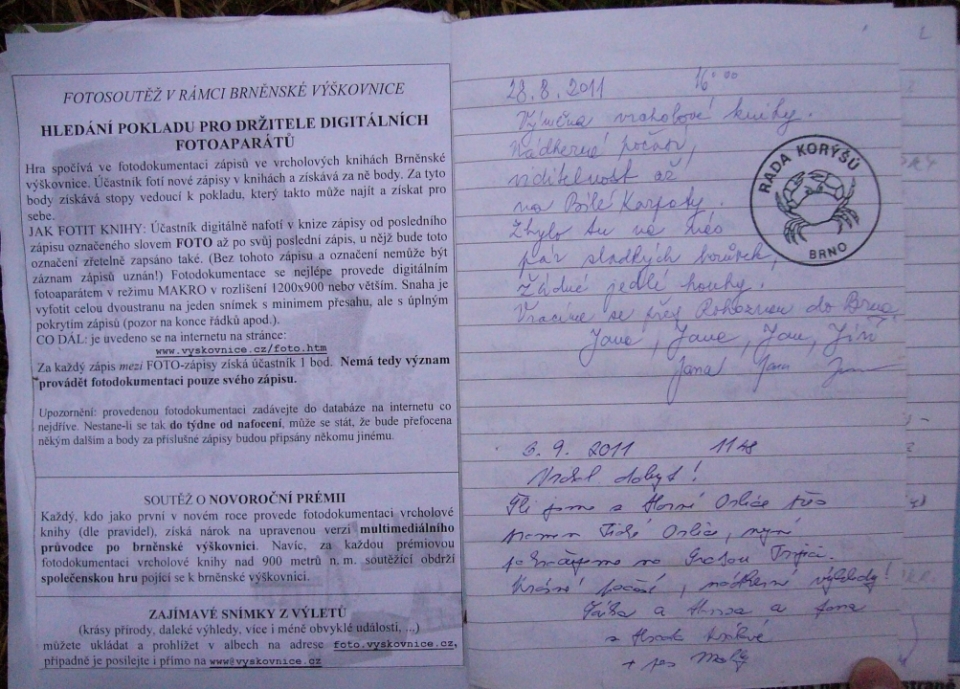 FOTOSOUTĚŽ V RÁMCI BRNĚNSKÉ VÝŠKOVNICE
HLEDÁNÍ POKLADU PRO DRŽITELE DIGITÁLNÍCH
FOTOAPARÁTŮ
Hra spočívá ve fotodokumentaci zápisů ve vrcholových knihách Brněnské
výškovnice. Účastník fotí nové zápisy v knihách a získává za ně body. Za tyto
body získává stopy vedoucí k pokladu, který takto může najít a získat pro
sebe.
JAK FOTIT KNIHU: Účastník digitálně nafotí v knize zápisy od posledního
zápisu označeného slovem FOTO až po svůj poslední zápis, u nějž bude toto
označení zřetelně zapsáno také. (Bez tohoto zápisu a označení nemůže být
záznam zápisů uznán!) Fotodokumentace se nejlépe provede digitálním
fotoaparátem v režimu MAKRO v rozlišení 1200x900 nebo větším. Snaha je
vyfotit celou dvoustranu na jeden snímek s minimem přesahu, ale s úplným
pokrytím zápisů (pozor na konce řádků apod.).
CO DÁL: je uvedeno se na internetu na stránce:
www.vyskovnice.cz/foto.htm
Za každý zápis mezi FOTO-zápisy získá účastník 1 bod. Nemá tedy význam
provádět fotodokumentaci pouze svého zápisu.
Upozornění: provedenou fotodokumentaci zadávejte do databáze na internetu co
nejdříve. Nestane-li se tak do týdne od nafocení, může se stát, že bude přefocena
někým dalším a body za příslušné zápisy budou připsány někomu jinému.
SOUTĚŽ O NOVOROČNÍ PRÉMII
Každý, kdo jako první v novém roce provede fotodokumentaci vrcholové
knihy (dle pravidel), získá nárok na upravenou verzi multimediálního
průvodce po brněnské výškovnici. Navíc, za každou prémiovou
fotodokumentaci vrcholové knihy nad 900 metrů n. m. soutěžící obdrží
společenskou hru pojící se k brněnské výškovnici.
ZAJÍMAVÉ SNÍMKY Z VÝLETŮ
(krásy přírody, daleké výhledy, více i méně obvyklé události, ...)
můžete ukládat a prohlížet v albech na adrese foto.vyskovnice.cz,
případně je posílejte i přímo na www@vyskovnice.cz
28.8.2011 16 00
Výměna vrcholové knihy.
Nádherné počasí,
viditelnost až
na Bílé Karpaty.
Zbylo tu na nás
pár sladkých borůvek,
žádné jedlé houby.
Vracíme se přes Rohoznou do Brna
Jana, Jana, Jan, Jiří
Jana
RADA KORÝŠŮ
BRNO
3. 9. 2011 1148
Vrchol dobyt!
Šli jsme z Horní Orlice přes
pramen Tiché Orlice, nyní
pokračujeme na
Krásné počasí, nádherné výhledy!
a Honza a Jana
z Hradce Králové
+ pes